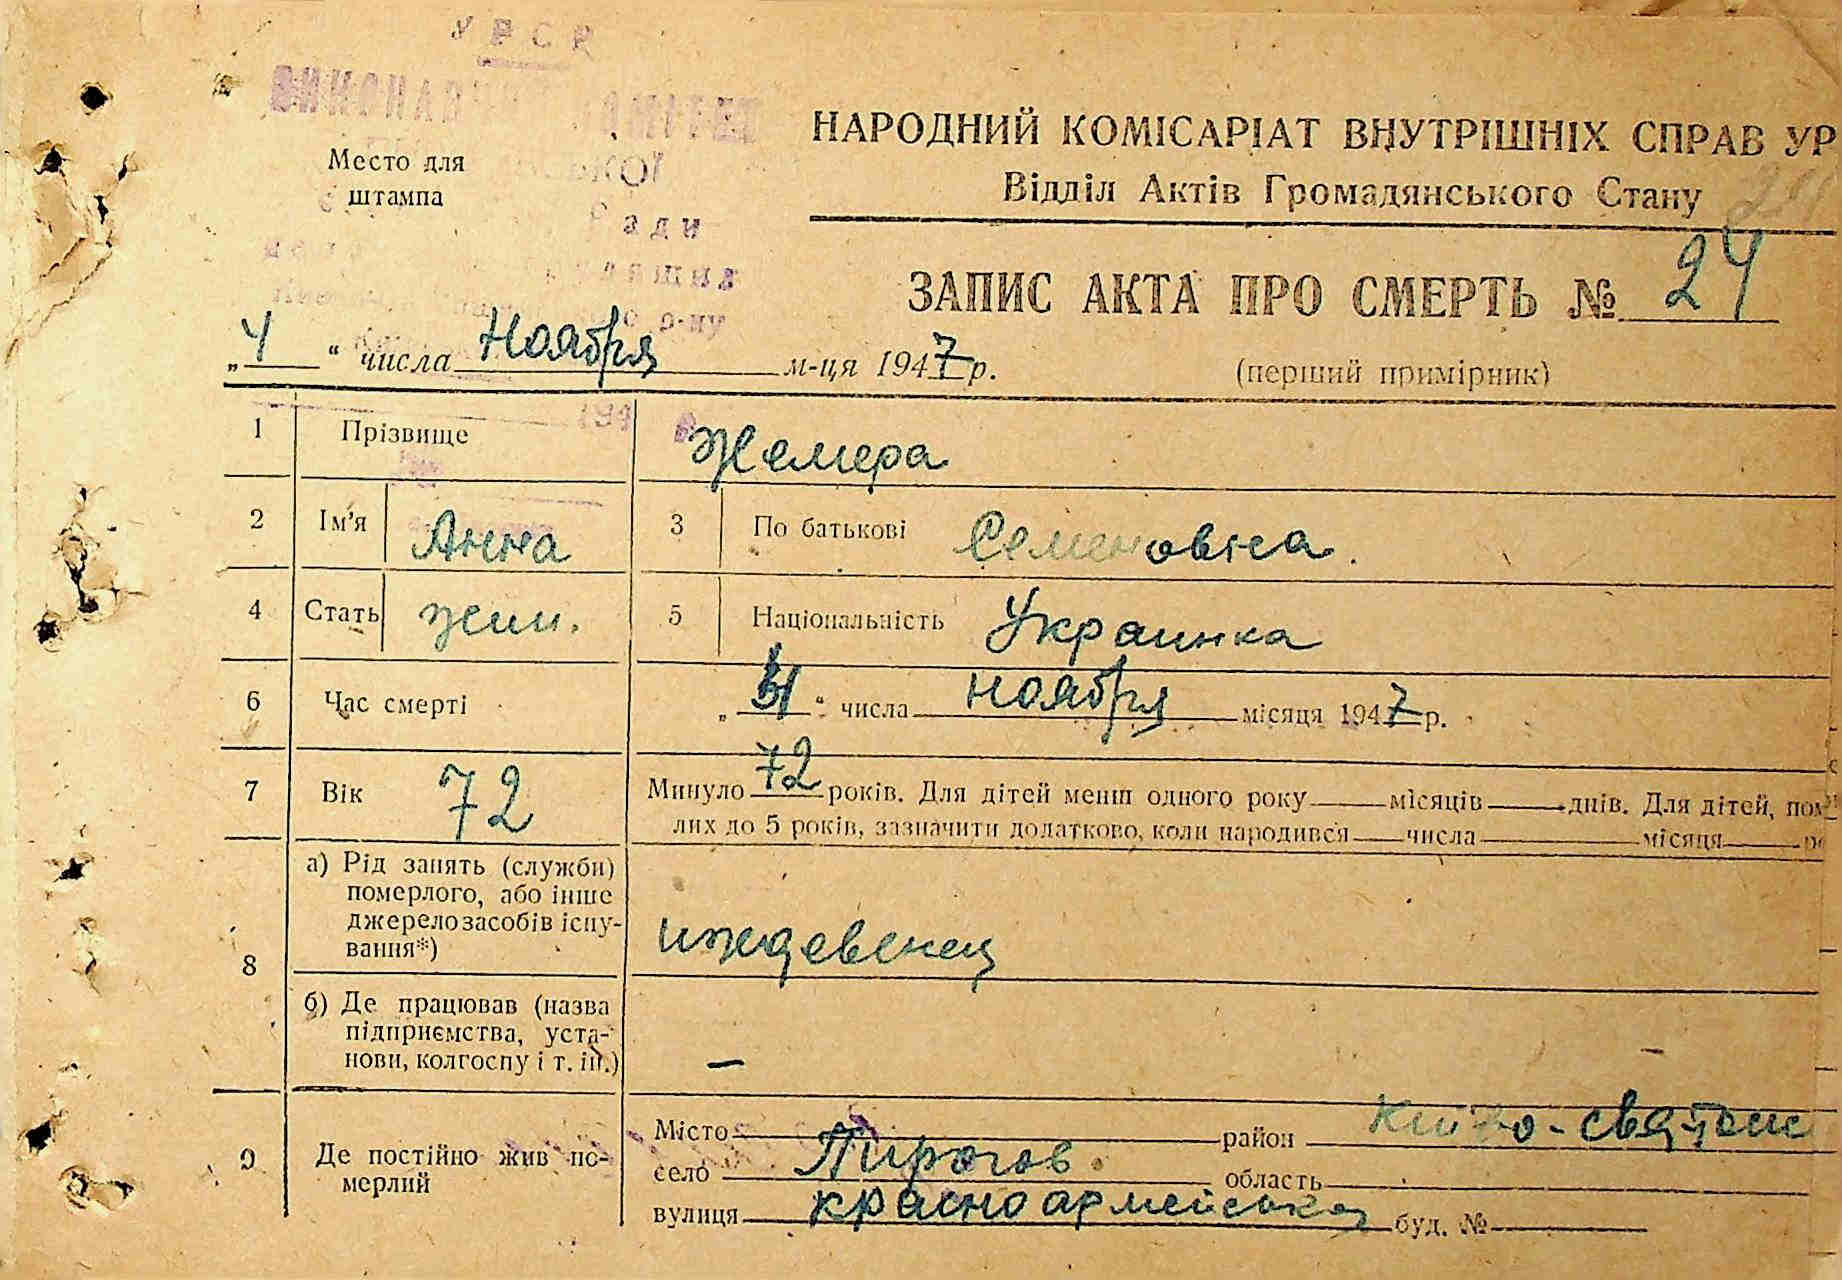 УРСР
ВИКОНАВЧИЙ КОМІТЕТ
Ради
Место для
штампа
НАРОДНИЙ КОМІСАРІАТ ВНУТРІШНІХ СПРАВ УР
Відділ Актів Громадянського Стану
ЗАПИС АКТА ПРО СМЕРТЬ № 24
„4“ числа Ноября м-ця 1947 р.
(перший примірник)
1 Прізвище Жемера
2 Ім'я Анна 3 По батькові Семеновна.
4 Стать жин. 5 Національність Украинка
6 Час смерті „4“ числа ноября місяця 1947 р.
7 Вік 72 Минуло 72 років. Для дітей менш одного року — місяців — днів. Для дітей, пом
лих до 5 років, зазначити додатково, коли народився — числа — місяця — ро
8 а) Рід занять (служби)
померлого, або інше
джерело засобів існу-
вання*)
иждевенец
б) Де працював (назва
підприємства, уста-
нови, колгоспу і т. ін.)
—
9 Де постійно жив по-
мерлий
Місто район Киево-святош
село Пирогов область
вулиця красноармейська буд. №